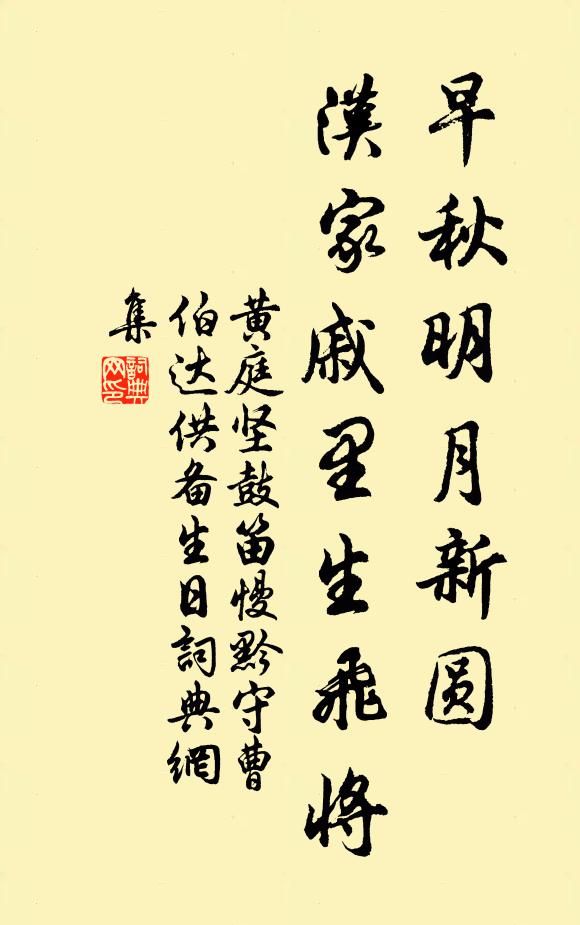 早秋明月新圆
漢家戚里生飛將
黄庭坚鼓笛慢黔守曹
伯达供备生日詞典網
集
詞典
网印